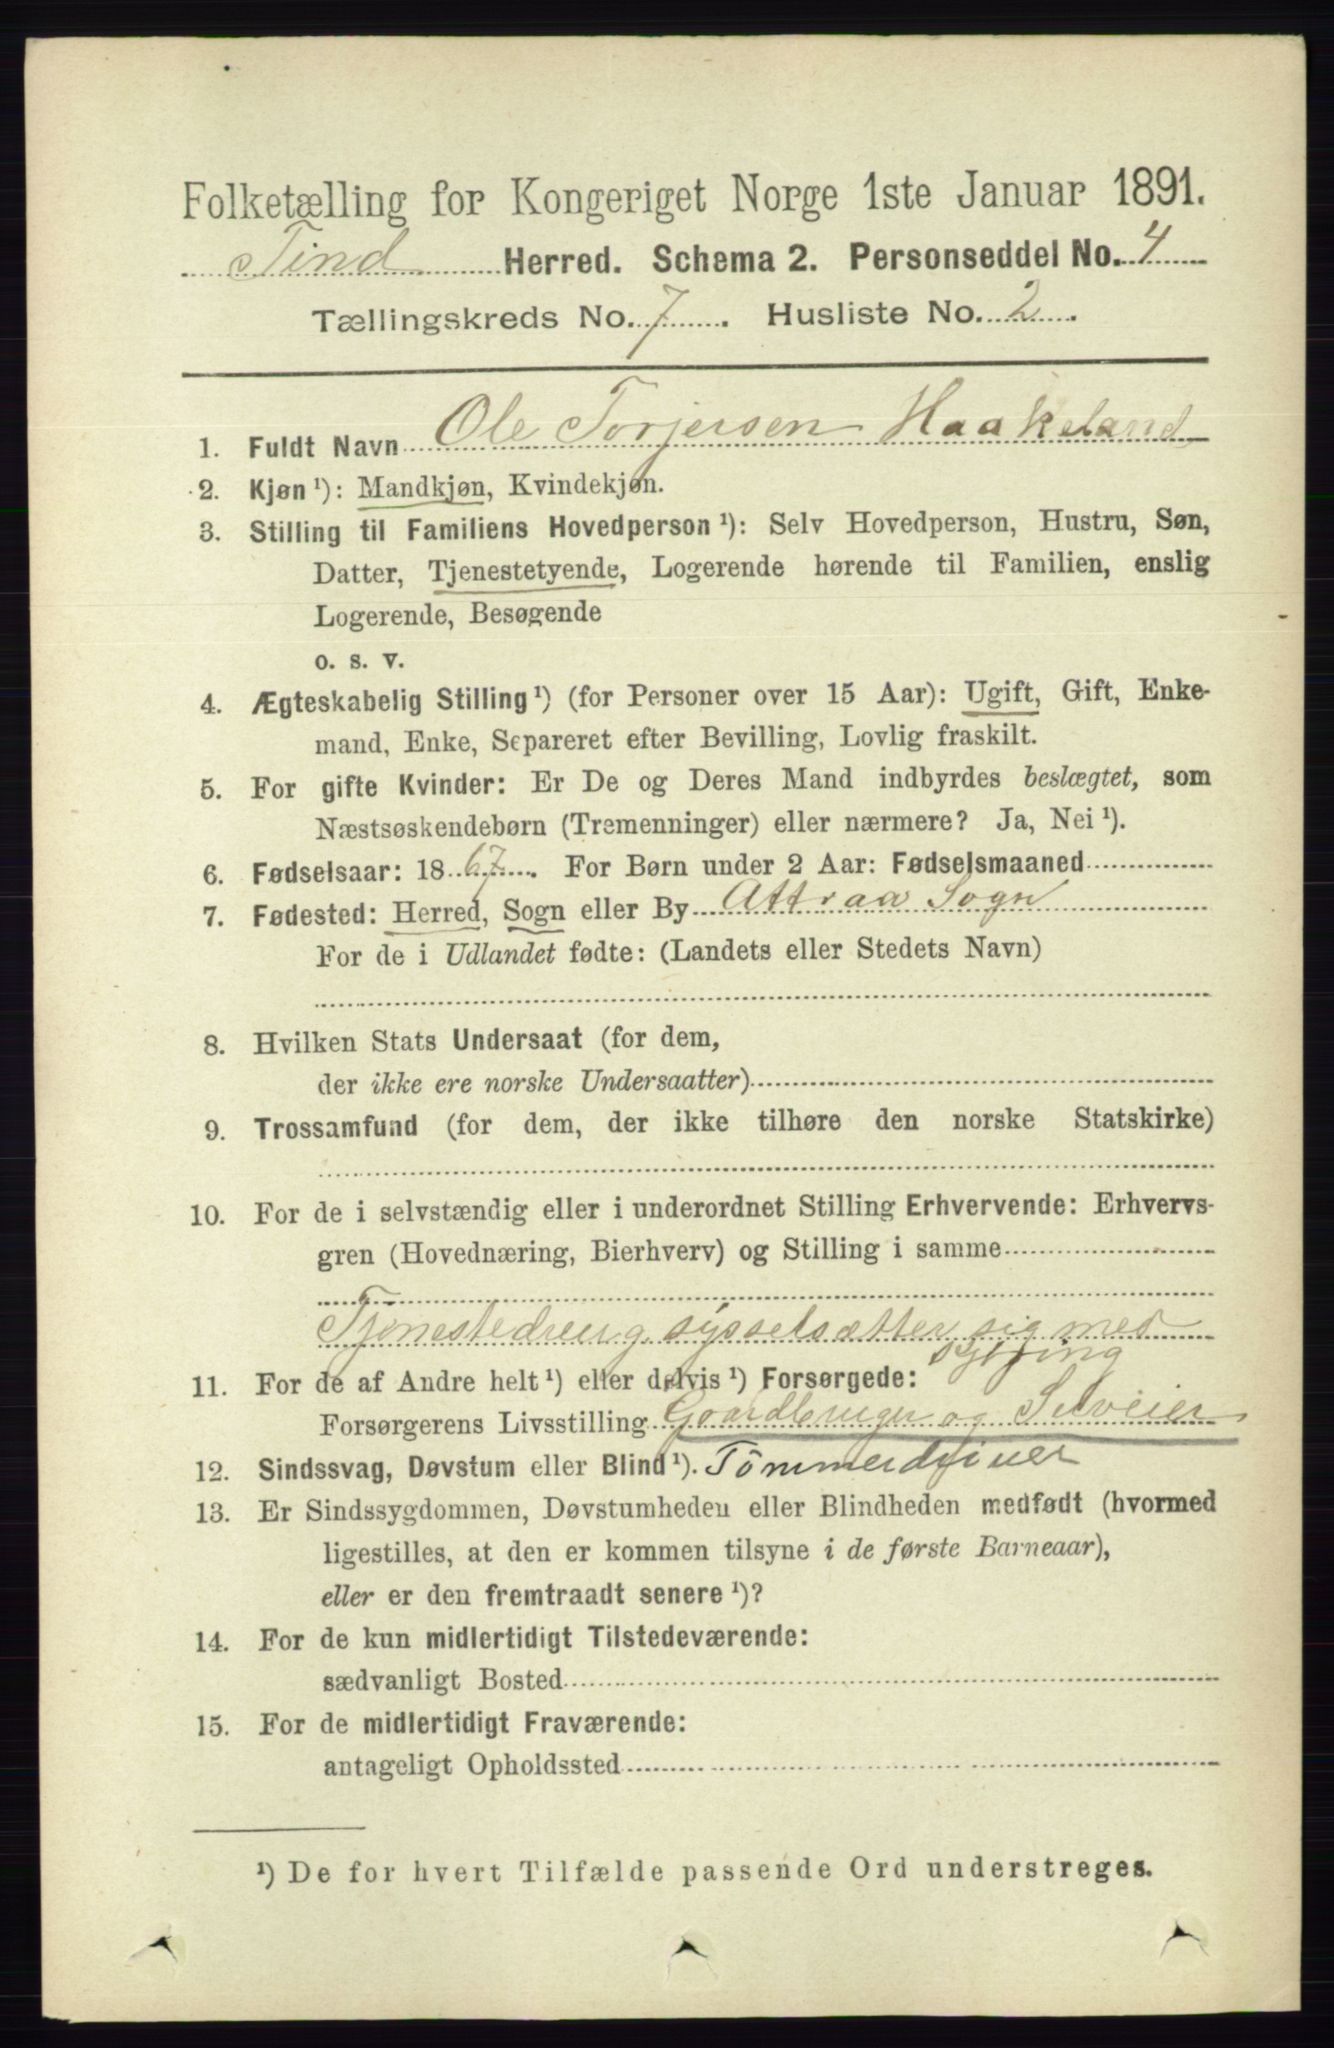 Folketælling for Kongeriget Norge 1ste Januar 1891.
Tind Herred. Schema 2. Personseddel No. 4
Tællingskreds No. 7. Husliste No. 2.
1. Fuldt Navn Ole Torjersen Haakeland
2. Kjøn ¹): Mandkjøn, Kvindekjøn.
3. Stilling til Familiens Hovedperson ¹): Selv Hovedperson, Hustru, Søn,
Datter, Tjenestetyende, Logerende hørende til Familien, enslig
Logerende, Besøgende
o. s. v.
4. Ægteskabelig Stilling ¹) (for Personer over 15 Aar): Ugift, Gift, Enke-
mand, Enke, Separeret efter Bevilling, Lovlig fraskilt.
5. For gifte Kvinder: Er De og Deres Mand indbyrdes beslægtet, som
Næstsøskendebørn (Tremenninger) eller nærmere? Ja, Nei ¹).
6. Fødselsaar: 1867. For Børn under 2 Aar: Fødselsmaaned
7. Fødested: Herred, Sogn eller By Attraa Sogn
For de i Udlandet fødte: (Landets eller Stedets Navn)
8. Hvilken Stats Undersaat (for dem,
der ikke ere norske Undersaatter)
9. Trossamfund (for dem, der ikke tilhøre den norske Statskirke)
10. For de i selvstændig eller i underordnet Stilling Erhvervende: Erhvervs-
gren (Hovednæring, Bierhverv) og Stilling i samme
Tjenestedreng sysselsætter sig med
Kjøring
11. For de af Andre helt ¹) eller delvis ¹) Forsørgede:
Forsørgerens Livsstilling Gaardbruger og Selveier
12. Sindssvag, Døvstum eller Blind ¹). Tömmerdriver
13. Er Sindssygdommen, Døvstumheden eller Blindheden medfødt (hvormed
ligestilles, at den er kommen tilsyne i de første Barneaar),
eller er den fremtraadt senere ¹)?
14. For de kun midlertidigt Tilstedeværende:
sædvanligt Bosted
15. For de midlertidigt Fraværende:
antageligt Opholdssted
¹) De for hvert Tilfælde passende Ord understreges.